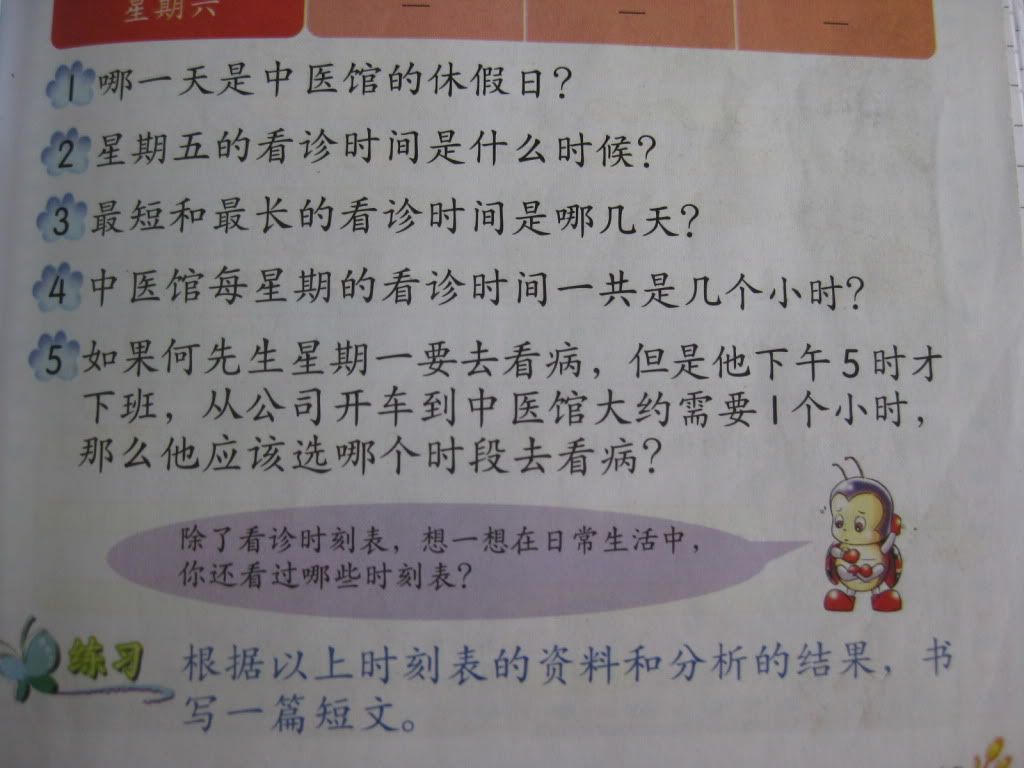 星期六 — — —
1 哪一天是中医馆的休假日?
2 星期五的看诊时间是什么时候?
3 最短和最长的看诊时间是哪几天?
4 中医馆每星期的看诊时间一共是几个小时?
5 如果何先生星期一要去看病，但是他下午5时才
下班，从公司开车到中医馆大约需要1个小时，
那么他应该选哪个时段去看病?
除了看诊时刻表，想一想在日常生活中，
你还看过哪些时刻表?
练习 根据以上时刻表的资料和分析的结果，书
写一篇短文。